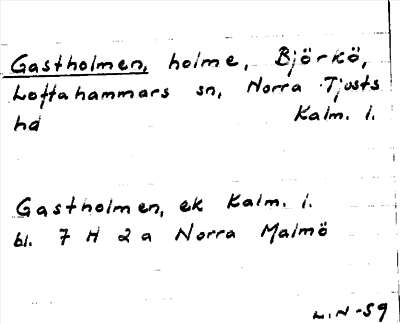 Gastholmen, holme, Björkö,
Loftahammars sn, Norra Tjusts
hd Kalm. l.
Gastholmen, ek Kalm. l.
bl. 7 H 2a Norra Malmö
L.N-59